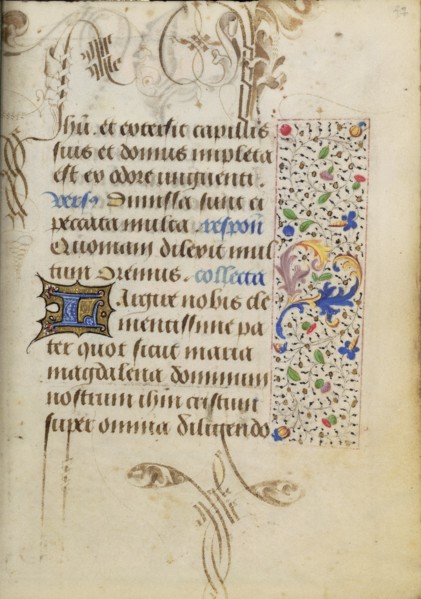 Ihū. et extersit capillis
suis et domus impleta
est ex odore unguenti.
vers⁹ Dimissa sunt ei
peccata multa. respoñ
Quoniam dilexit mul
tum Oremus. collecta
Largire nobis cle
mentissime pa
ter quot sicut maria
magdalena dominum
nostrum ihm cristum
super omnia diligendo